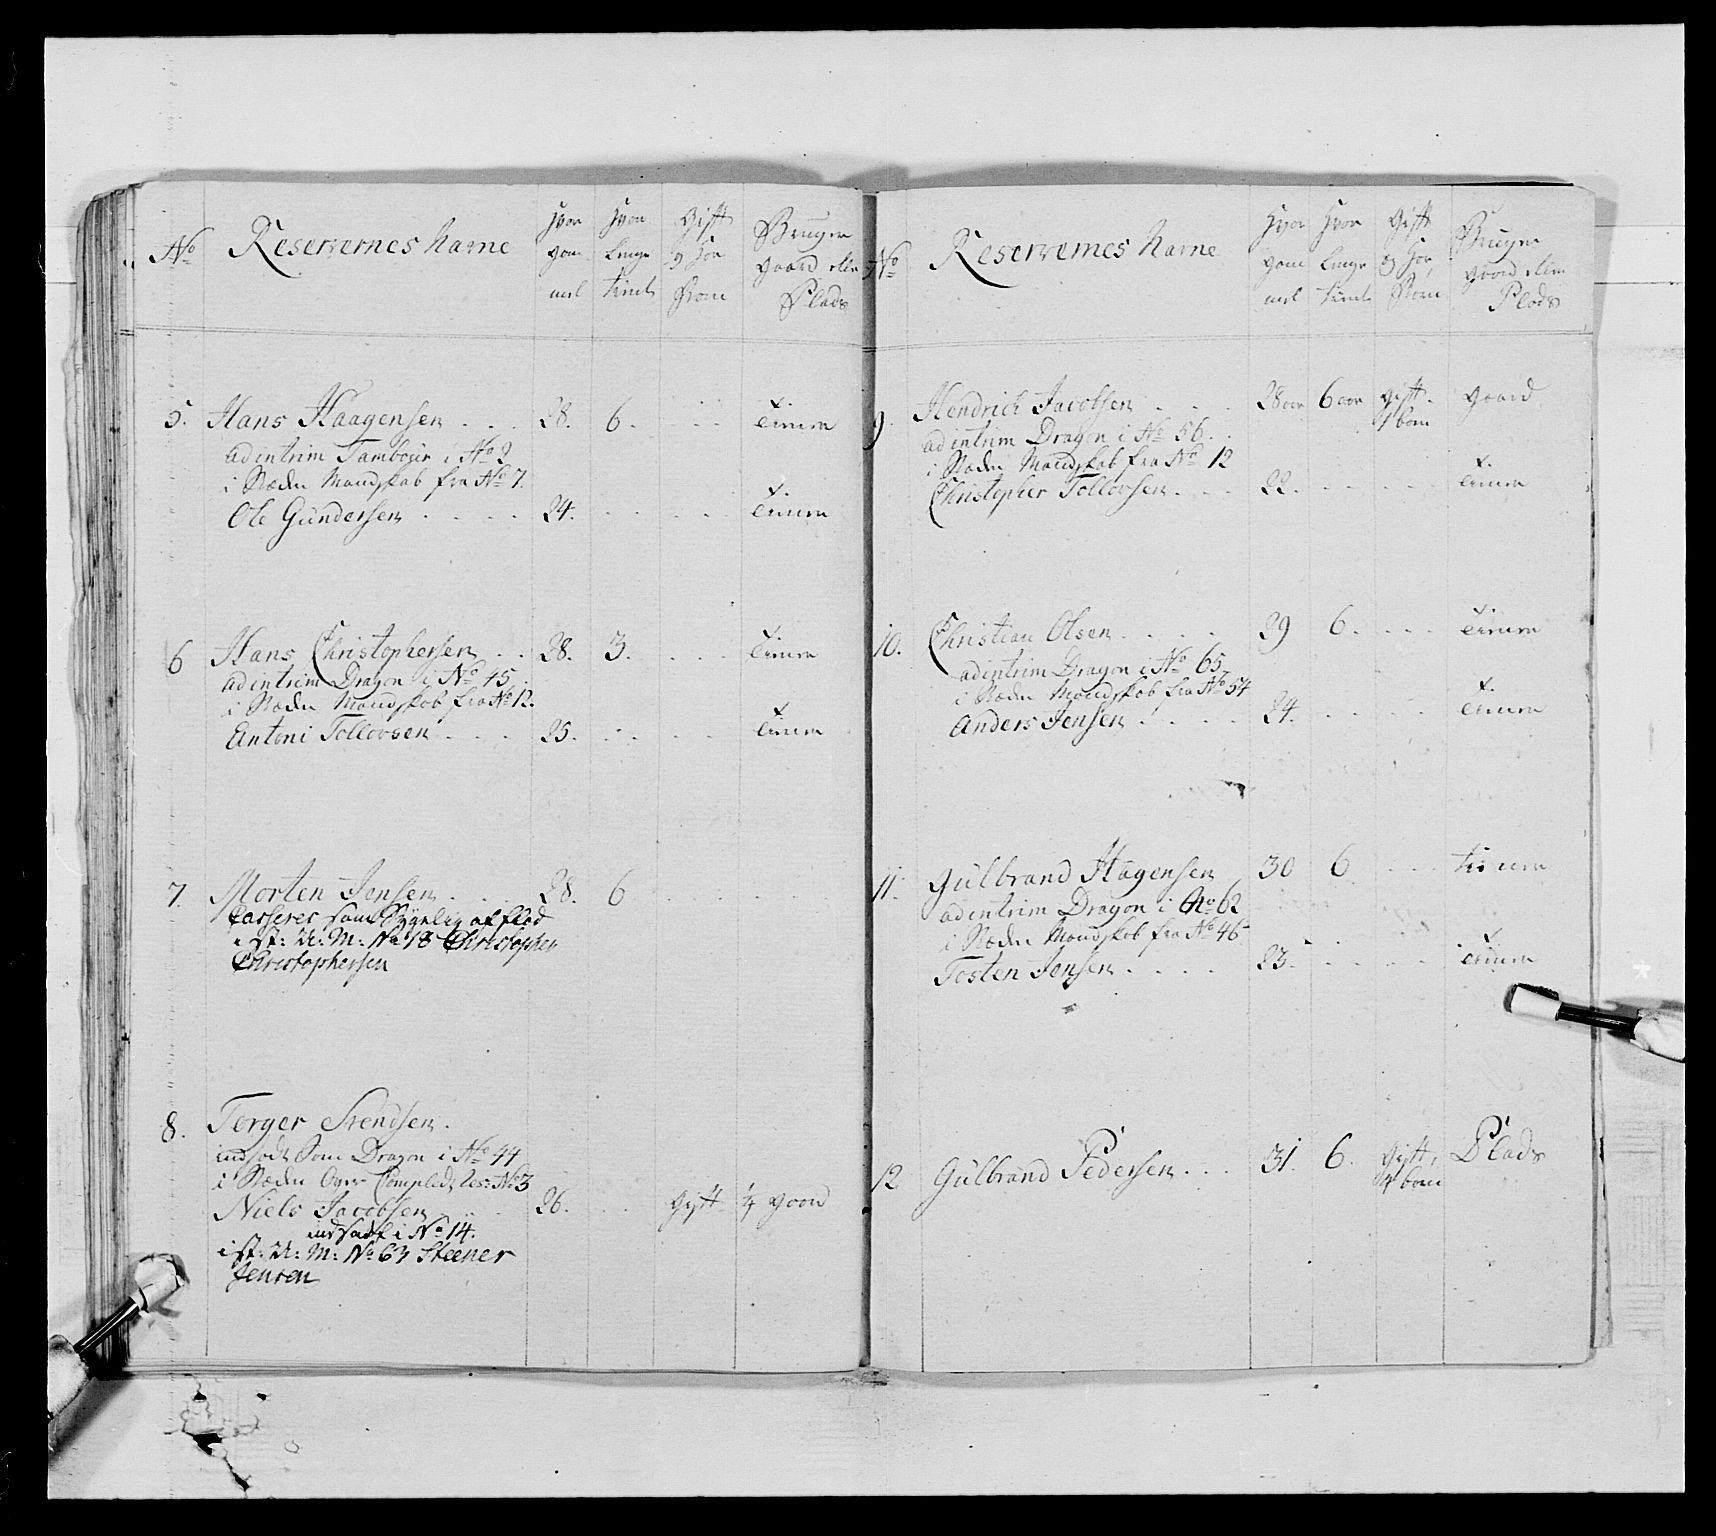 No
Reservernes Navne
Hvor gam̅el
Hvor lenge tient
Gift og Hør Børn
Bruger gaard eller Plads
5. Hans Haagensen . . . 28. 6. . . tiener
ad intrim Tambour i No 2
i Stæden Mandskab fra No 7.
Ole Gundersen . . . . 24. . . . . tiener
6 Hans Christophersen . . 28. 3. . . . tiener
ad intrim Dragon i No 45
i Stæden Mandskab fra No 12.
Antoni Tollovsen . . . 25. . . . . tiener
7. Morten Jensen . . 28. 6
Casseres som Sygelig af flod
i st: U: M: No 18 Christopher
Christophersen
8. Torger Svendsen.
indsadt som Dragon i No 44
i Stæden Over Compledt Res: No 3
Niels Jacobsen . . . 26. . . Gift 1/4 gaard
indsadt i No 14.
i st: U: M: No 63 Steener
Jensen
No
Reservernes Navne
Hvor gam̅el
Hvor lenge tient
Gift og Hør Børn
Bruger gaard eller Plads
9. Hendrich Jacobsen . . . 28 aar 6 aar gift. 1 barn gaard
ad intrim Dragon i No 56.
i Stæden Mandskab fra No 12
Christopher Tollovsen . . . 22. . . . . tiener
10. Christian Olsen . . . . 29 6. . . . tiener
ad intrim Dragon i No 65
i Stæden Mandskab fra No 54
Anders Jensen . . . . 24. . . . . tiener
11. Gulbrand Hagensen 30 6 . . . tiener
ad intrim Dragon i No 62
i Stæden Mandskab fra No 46
Tosten Jensen . . . . 23. . . . . tiener
12 Gulbrand Pedersen . . . 31. 6. Gift, born Plads